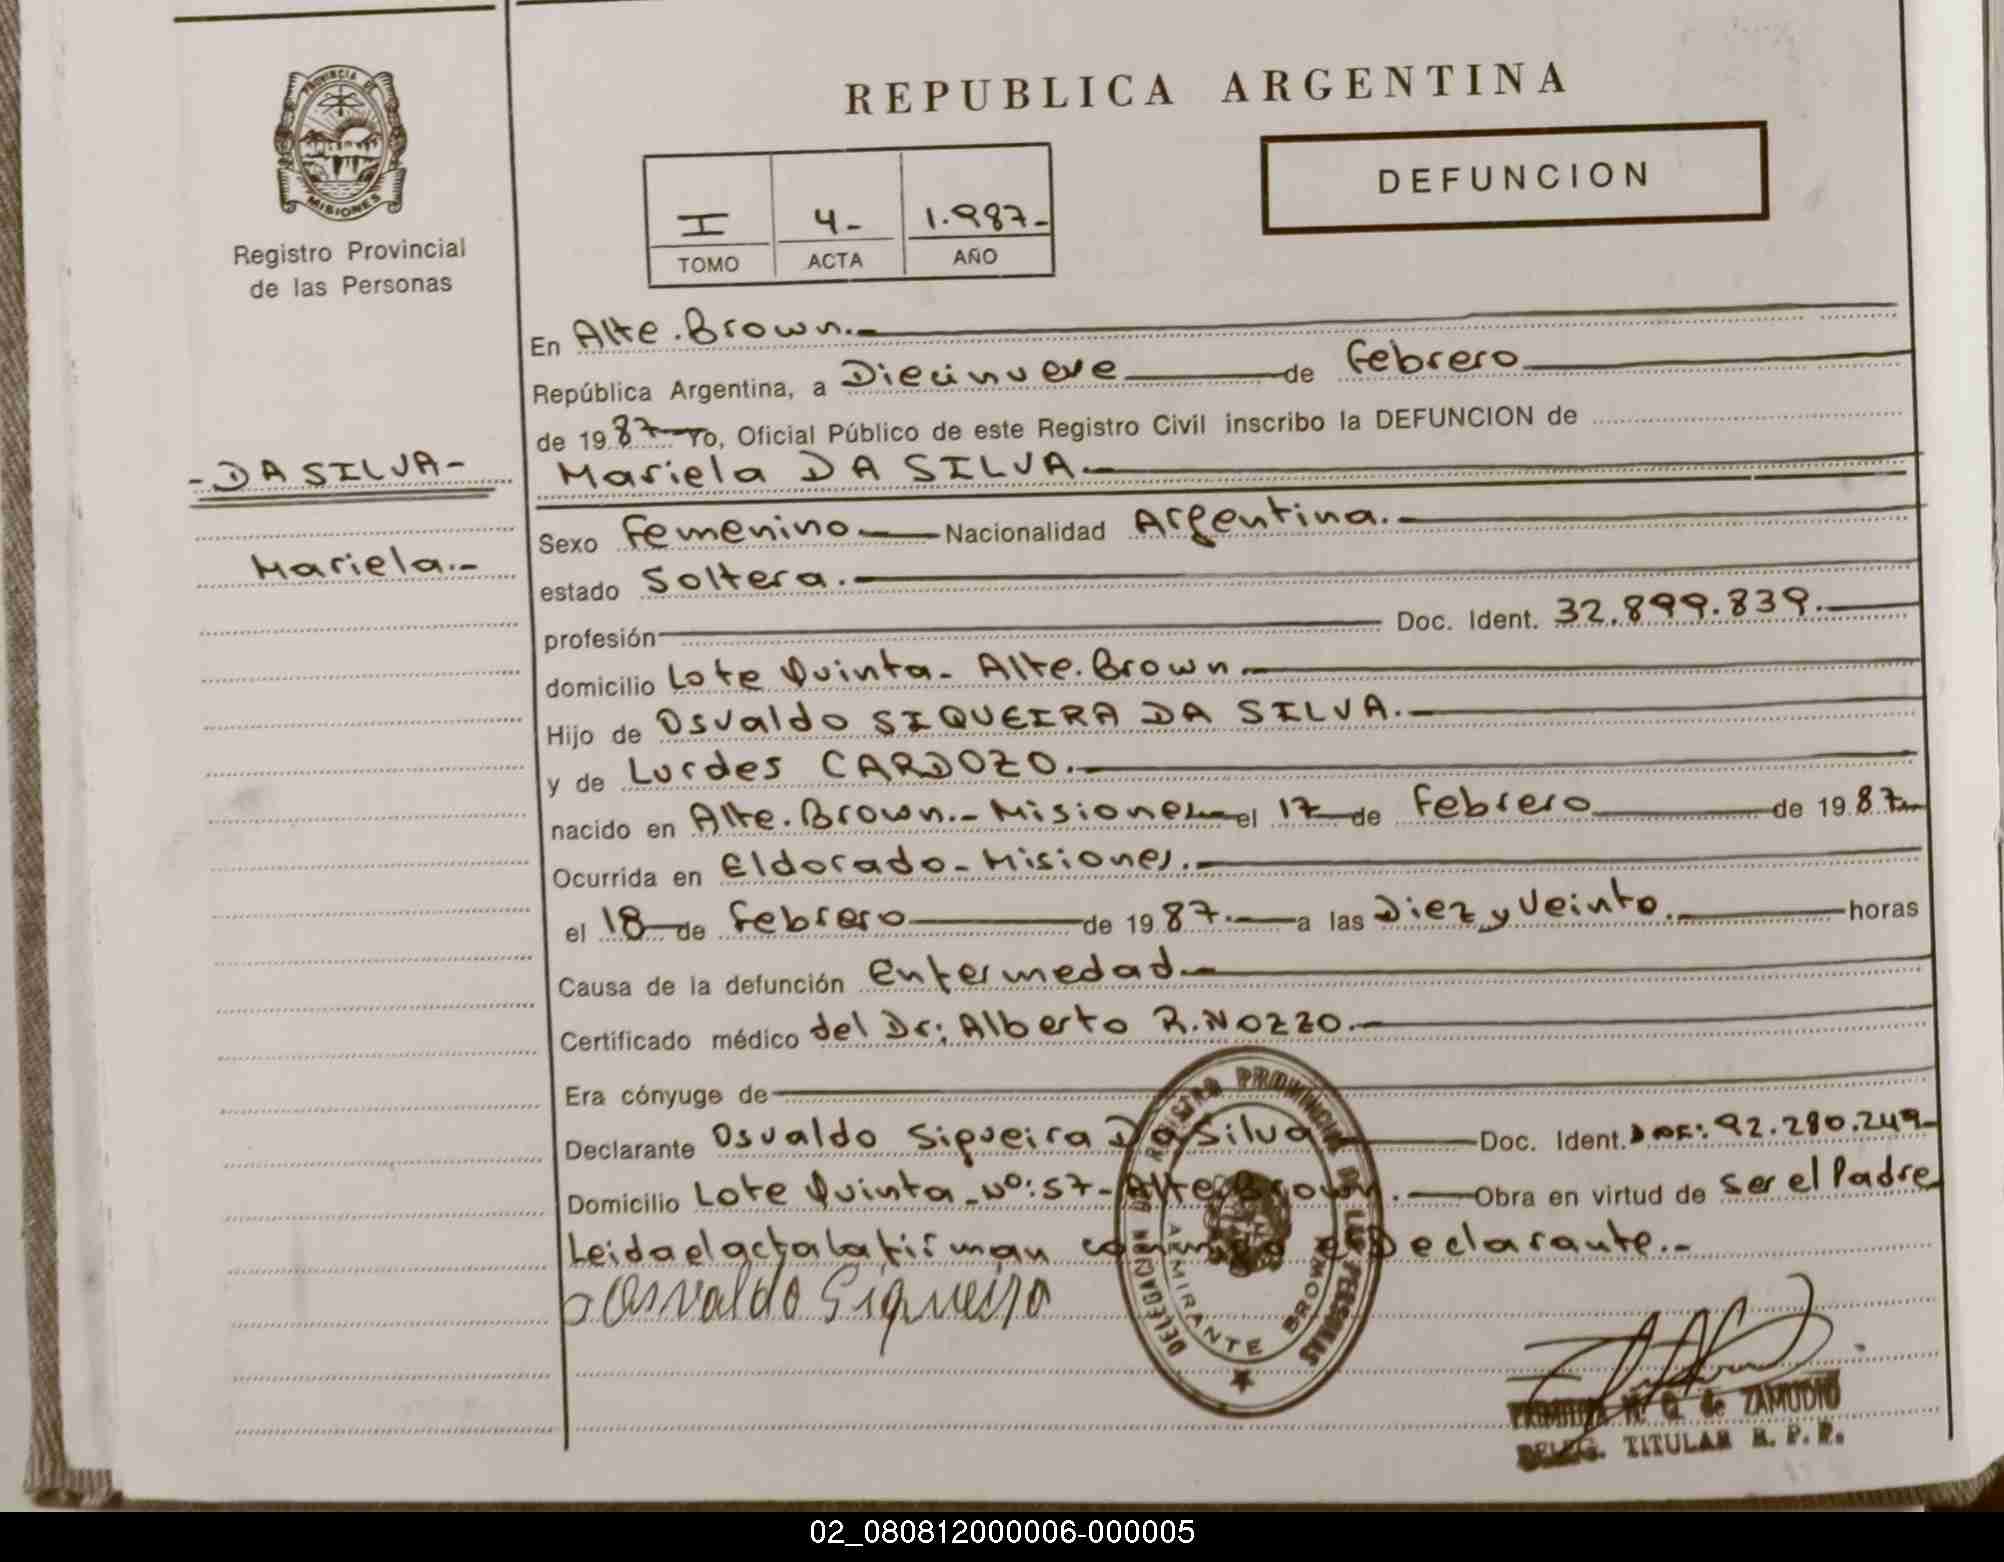 PROVINCIA DE
MISIONES
Registro Provincial
de las Personas
REPUBLICA ARGENTINA
DEFUNCION
I 4- 1.987-
TOMO ACTA AÑO
En Alte. Brown.-
República Argentina, a Diecinueve de Febrero
de 1987 Yo, Oficial Público de este Registro Civil inscribo la DEFUNCION de
-DA SILVA-
Mariela DA SILVA.-
Mariela.-
Sexo Femenino Nacionalidad Argentina.-
estado Soltera.-
profesión Doc. Ident. 32.899.839.-
domicilio Lote Quinta- Alte. Brown-
Hijo de Osvaldo SIQUEIRA DA SILVA.-
y de Lurdes CARDOZO.-
nacido en Alte. Brown.- Misiones el 17 de Febrero de 1987
Ocurrida en Eldorado- Misiones.-
el 18 de Febrero de 1987.- a las Diez y Veinte.- horas
Causa de la defunción Enfermedad-
Certificado médico del Dr; Alberto R. NOZZO.-
Era cónyuge de
Declarante Osvaldo Siqueira Da Silva Doc. Ident. 92.280.249-
Domicilio Lote Quinta-Nº:57-Alte. Brown.- Obra en virtud de ser el Padre
Leida el acta la firman conmigo el Declarante.-
Osvaldo Siqueira
DELEGACION REGISTRO PROVINCIAL DE LAS PERSONAS
ALMIRANTE BROWN
de ZAMUDIO
DELEG. TITULAR R. P. P.
02_080812000006-000005